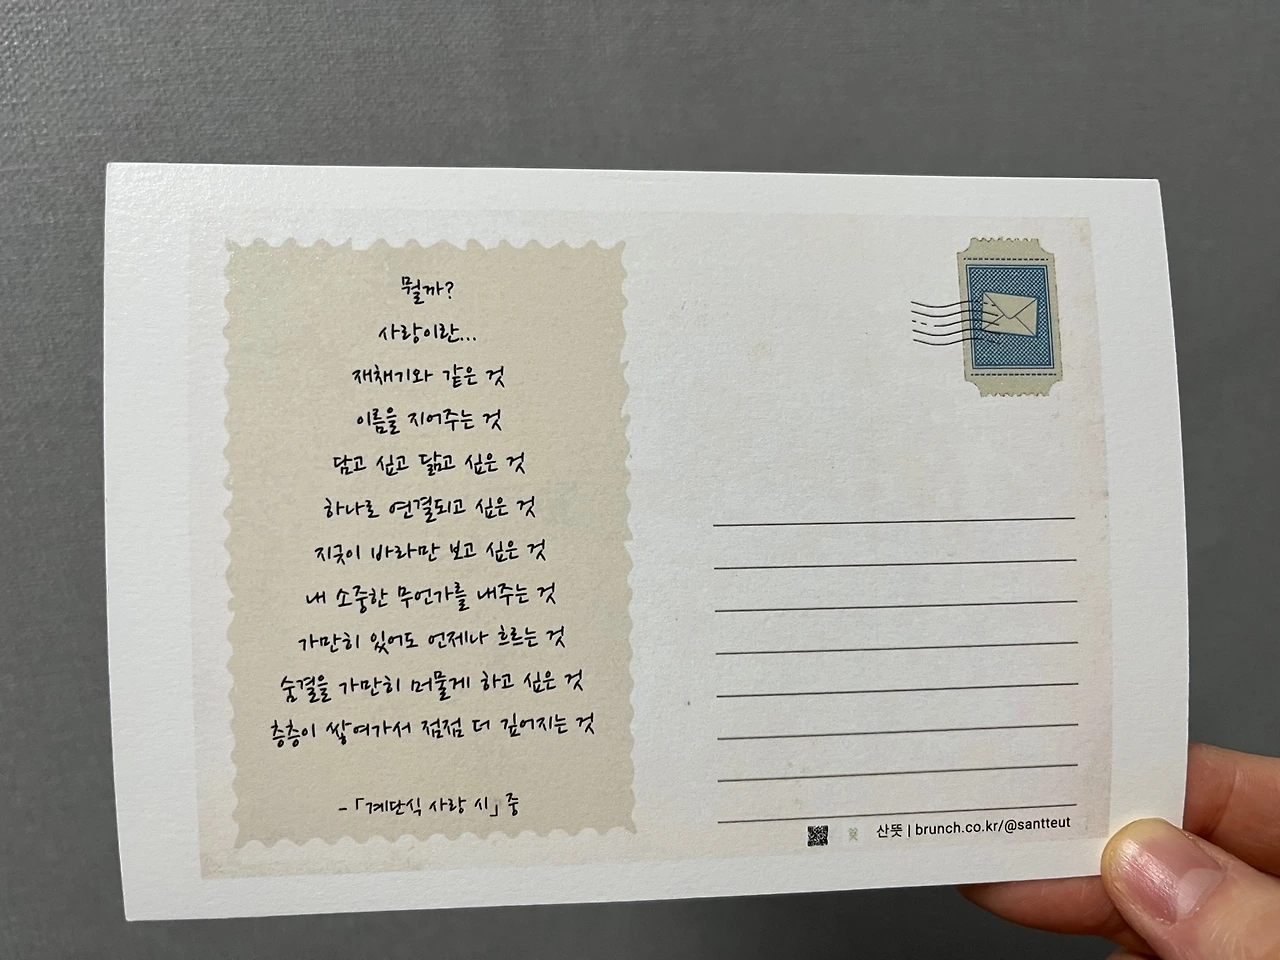 뭘까?
사랑이란...
재채기와 같은 것
이름을 지어주는 것
담고 싶고 닮고 싶은 것
하나로 연결되고 싶은 것
지긋이 바라만 보고 싶은 것
내 소중한 무언가를 내주는 것
가만히 있어도 언제나 흐르는 것
숨결을 가만히 머물게 하고 싶은 것
층층이 쌓여가서 점점 더 깊어지는 것
-「계단식 사랑 시」중
산뜻 | brunch.co.kr/@santteut